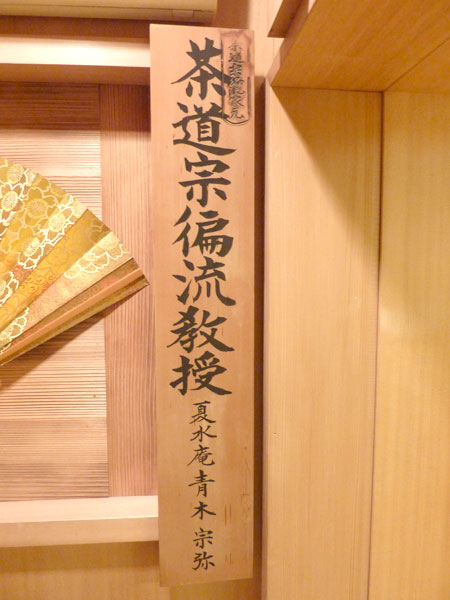 茶道宗偏流教授
夏水庵青木宗弥